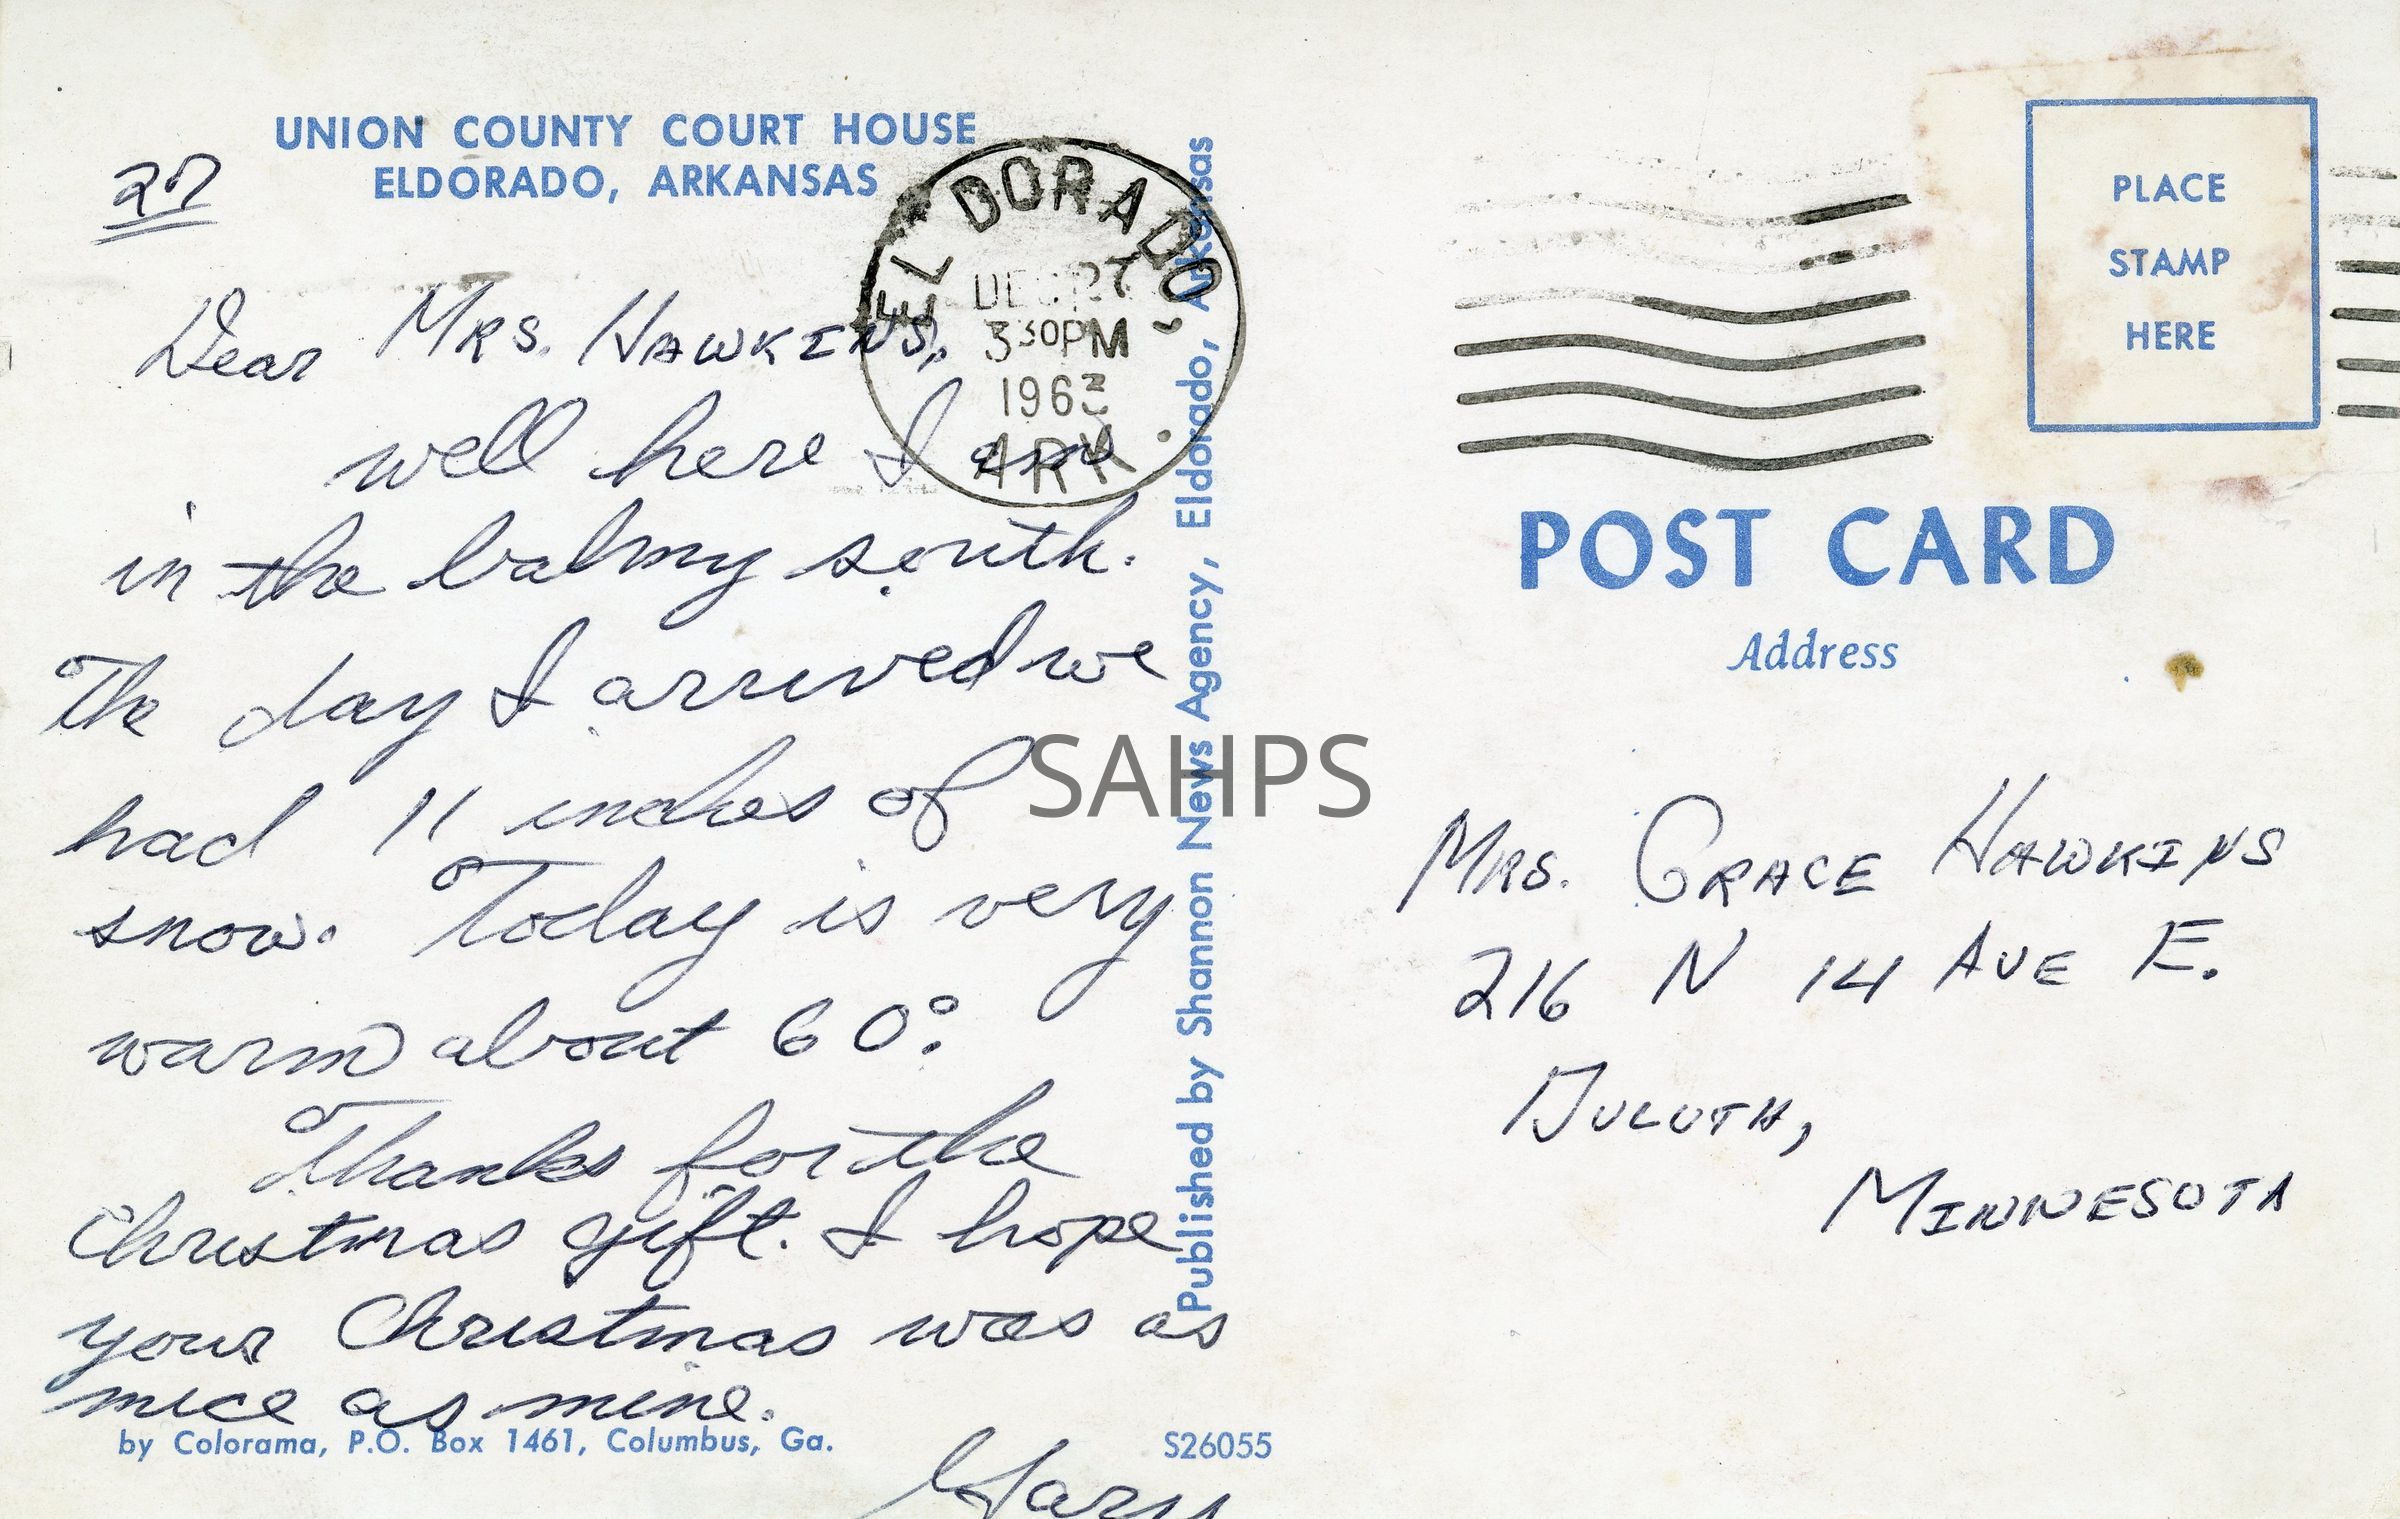 UNION COUNTY COURT HOUSE
ELDORADO, ARKANSAS
27
Dear MRS. HAWKINS,
well here I am
in the balmy south.
The day I arrived we
had 11 inches of
snow. Today is very
warm about 60°.
Thanks for the
Christmas gift. I hope
your Christmas was as
nice as mine.
Gary
by Colorama, P.O. Box 1461, Columbus, Ga.
S26055
EL DORADO,
DEC 27
3 30 PM
1963
ARK.
Published by Shannon News Agency, Eldorado, Arkansas
SAHPS
PLACE
STAMP
HERE
POST CARD
Address
MRS. GRACE HAWKINS
216 N 14 AVE E.
DULUTH,
MINNESOTA